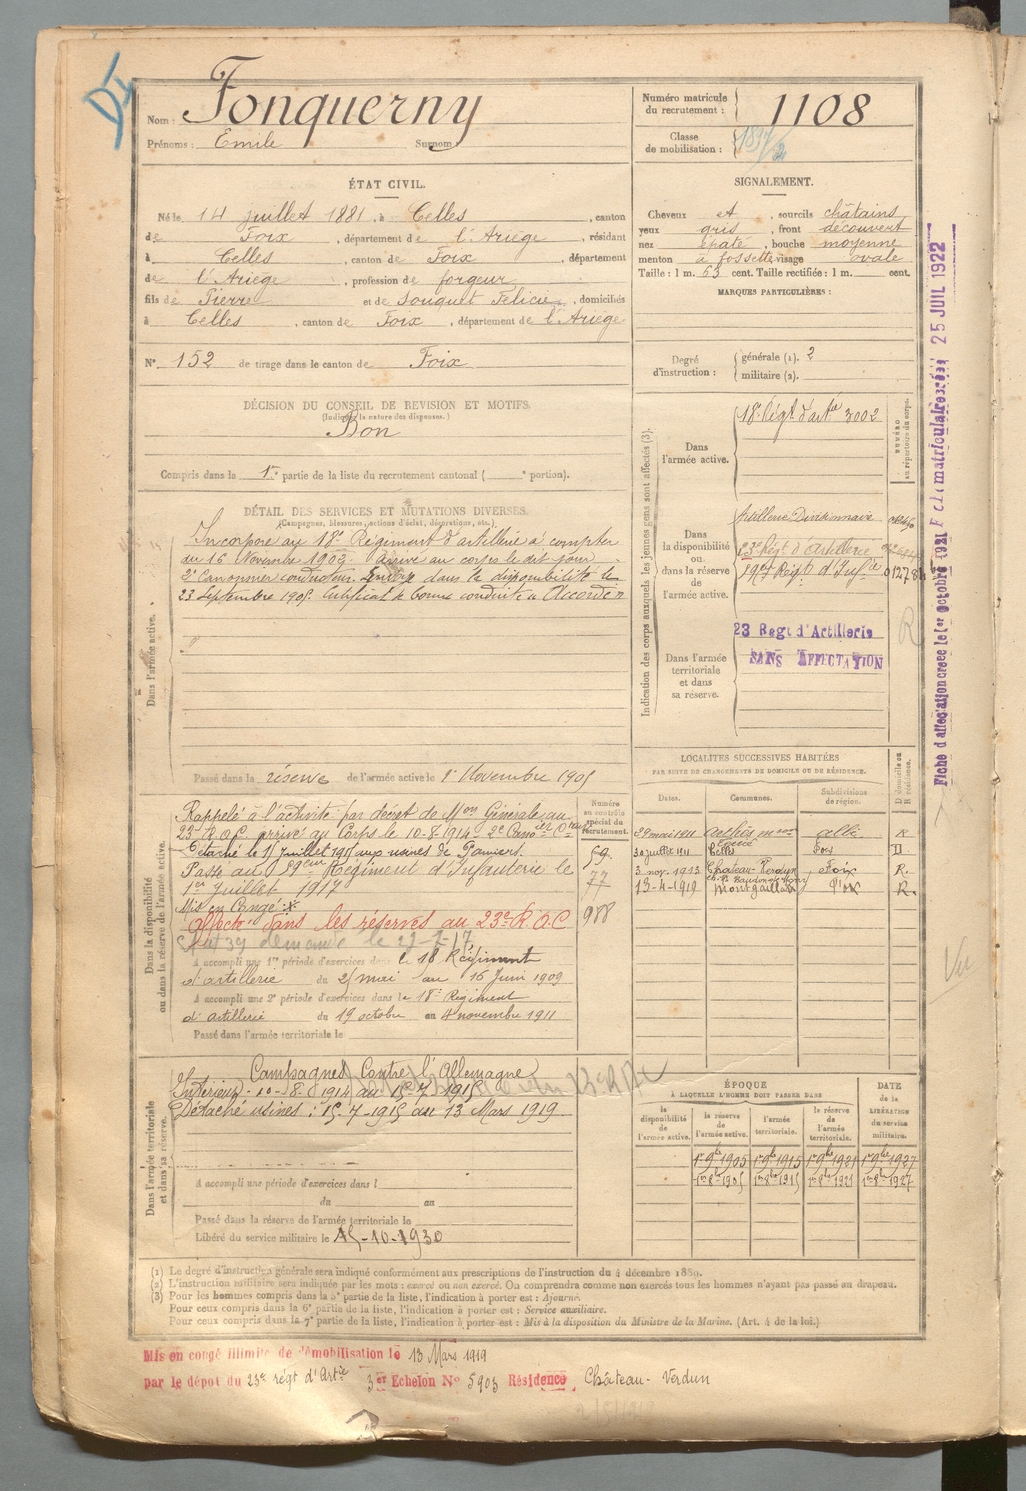 Nom : Fonquerny
Prénoms : Emile Surnom :
Numéro matricule du recrutement : 1108
Classe de mobilisation :
ÉTAT CIVIL.
Né le 14 juillet 1881, à Celles, canton
de Foix, département de l'Ariège, résidant
à Celles, canton de Foix, département
de l'Ariège, profession de forgeur
fils de Pierre et de Souquet Félicie, domiciliés
à Celles, canton de Foix, département de l'Ariège
N° 152 de tirage dans le canton de Foix
SIGNALEMENT.
Cheveux et, sourcils châtains
yeux gris, front découvert
nez épaté, bouche moyenne
menton à fossette visage ovale
Taille : 1 m. 63 cent. Taille rectifiée : 1 m. cent.
MARQUES PARTICULIÈRES :
Degré d'instruction : générale (1). 2
militaire (2).
DÉCISION DU CONSEIL DE REVISION ET MOTIFS.
(Indiquer la nature des dispenses.)
Bon
Compris dans la 1re partie de la liste du recrutement cantonal ( e portion).
DÉTAIL DES SERVICES ET MUTATIONS DIVERSES.
(Campagnes, blessures, actions d'éclat, décorations, etc.)
Dans l'armée active.
Incorporé au 18e Régiment d'artillerie à compter
du 16 Novembre 1902 arrivé au corps le dit jour
2e Canonnier conducteur. Envoyé dans la disponibilité le
23 septembre 1905. Certificat de bonne conduite "Accordé"
Passé dans la réserve de l'armée active le 1er Novembre 1905
Indication des corps auxquels les jeunes gens sont affectés (3).
NUMÉRO au répertoire du corps.
Dans l'armée active.
18e Régt d'artie 3002
Dans la disponibilité ou dans la réserve de l'armée active.
Artillerie Divisionnaire
23e Régt d'Artillerie
Régt d'Infie 01278
Dans l'armée territoriale et dans sa réserve.
23 Regt d'Artillerie
SANS AFFECTATION
Fiche d'affectation créée le 1er octobre 1921 F 25 JUIL 1922
Dans la disponibilité ou dans la réserve de l'armée active.
Numéro au contrôle spécial du recrutement.
Rappelé à l'activité par décret de Mon Générale au
23e R.A.C. arrivé au Corps le 10-8-1914 2e Cano
Détaché le 15 juillet 1915 aux usines de Pamiers. 59
Passé au Régiment d'Infanterie le 77
1er Juillet 1917
Mis en Congé
Affecté dans les réserves au 23e R.A.C 988
A accompli une 1re période d'exercices dans le 18 Régiment
d'artillerie du 25 mai au 16 Juin 1909
A accompli une 2e période d'exercices dans le 18e Régiment
d'artillerie du 19 octobre au 4 novembre 1911
Passé dans l'armée territoriale le
LOCALITÉS SUCCESSIVES HABITÉES
PAR SUITE DE CHANGEMENTS DE DOMICILE OU DE RÉSIDENCE.
Dates. Communes. Subdivisions de région. D domicile ou R résidence.
29 mai 1911 albi R
30 juillet 1911 Celles Foix D
3 nov. 1913 Chateau-Verdun Foix R.
13-4-1919 Montgaillard Foix R.
Vu
Dans l'armée territoriale et dans sa réserve.
Campagnes Contre l'Allemagne
Intérieur : 10-8-1914 au 15-7-1915
Détaché usines : 15-7-1915 au 13 Mars 1919
A accompli une période d'exercices dans l
du au
Passé dans la réserve de l'armée territoriale le
Libéré du service militaire le 15-10-1930
ÉPOQUE
À LAQUELLE L'HOMME DOIT PASSER DANS
DATE de la LIBÉRATION du service militaire.
la disponibilité de l'armée active. la réserve de l'armée active. l'armée territoriale. la réserve de l'armée territoriale.
1er 9bre 1905 1er 9bre 1915 1er 9bre 1921 1er 9bre 1927
1er 8bre 1905 1er 8bre 1915 1er 8bre 1921 1er 8bre 1927
(1) Le degré d'instruction générale sera indiqué conformément aux prescriptions de l'instruction du 4 décembre 1889.
(2) L'instruction militaire sera indiquée par les mots : exercé ou non exercé. On comprendra comme non exercés tous les hommes n'ayant pas passé au drapeau.
(3) Pour les hommes compris dans la 5e partie de la liste, l'indication à porter est : Ajourné.
Pour ceux compris dans la 6e partie de la liste, l'indication à porter est : Service auxiliaire.
Pour ceux compris dans la 7e partie de la liste, l'indication à porter est : Mis à la disposition du Ministre de la Marine. (Art. 4 de la loi.)
Mis en congé illimité de démobilisation le 13 Mars 1919
par le dépôt du 23e régt d'Artie 3er Echelon No 5903 Résidence Château-Verdun